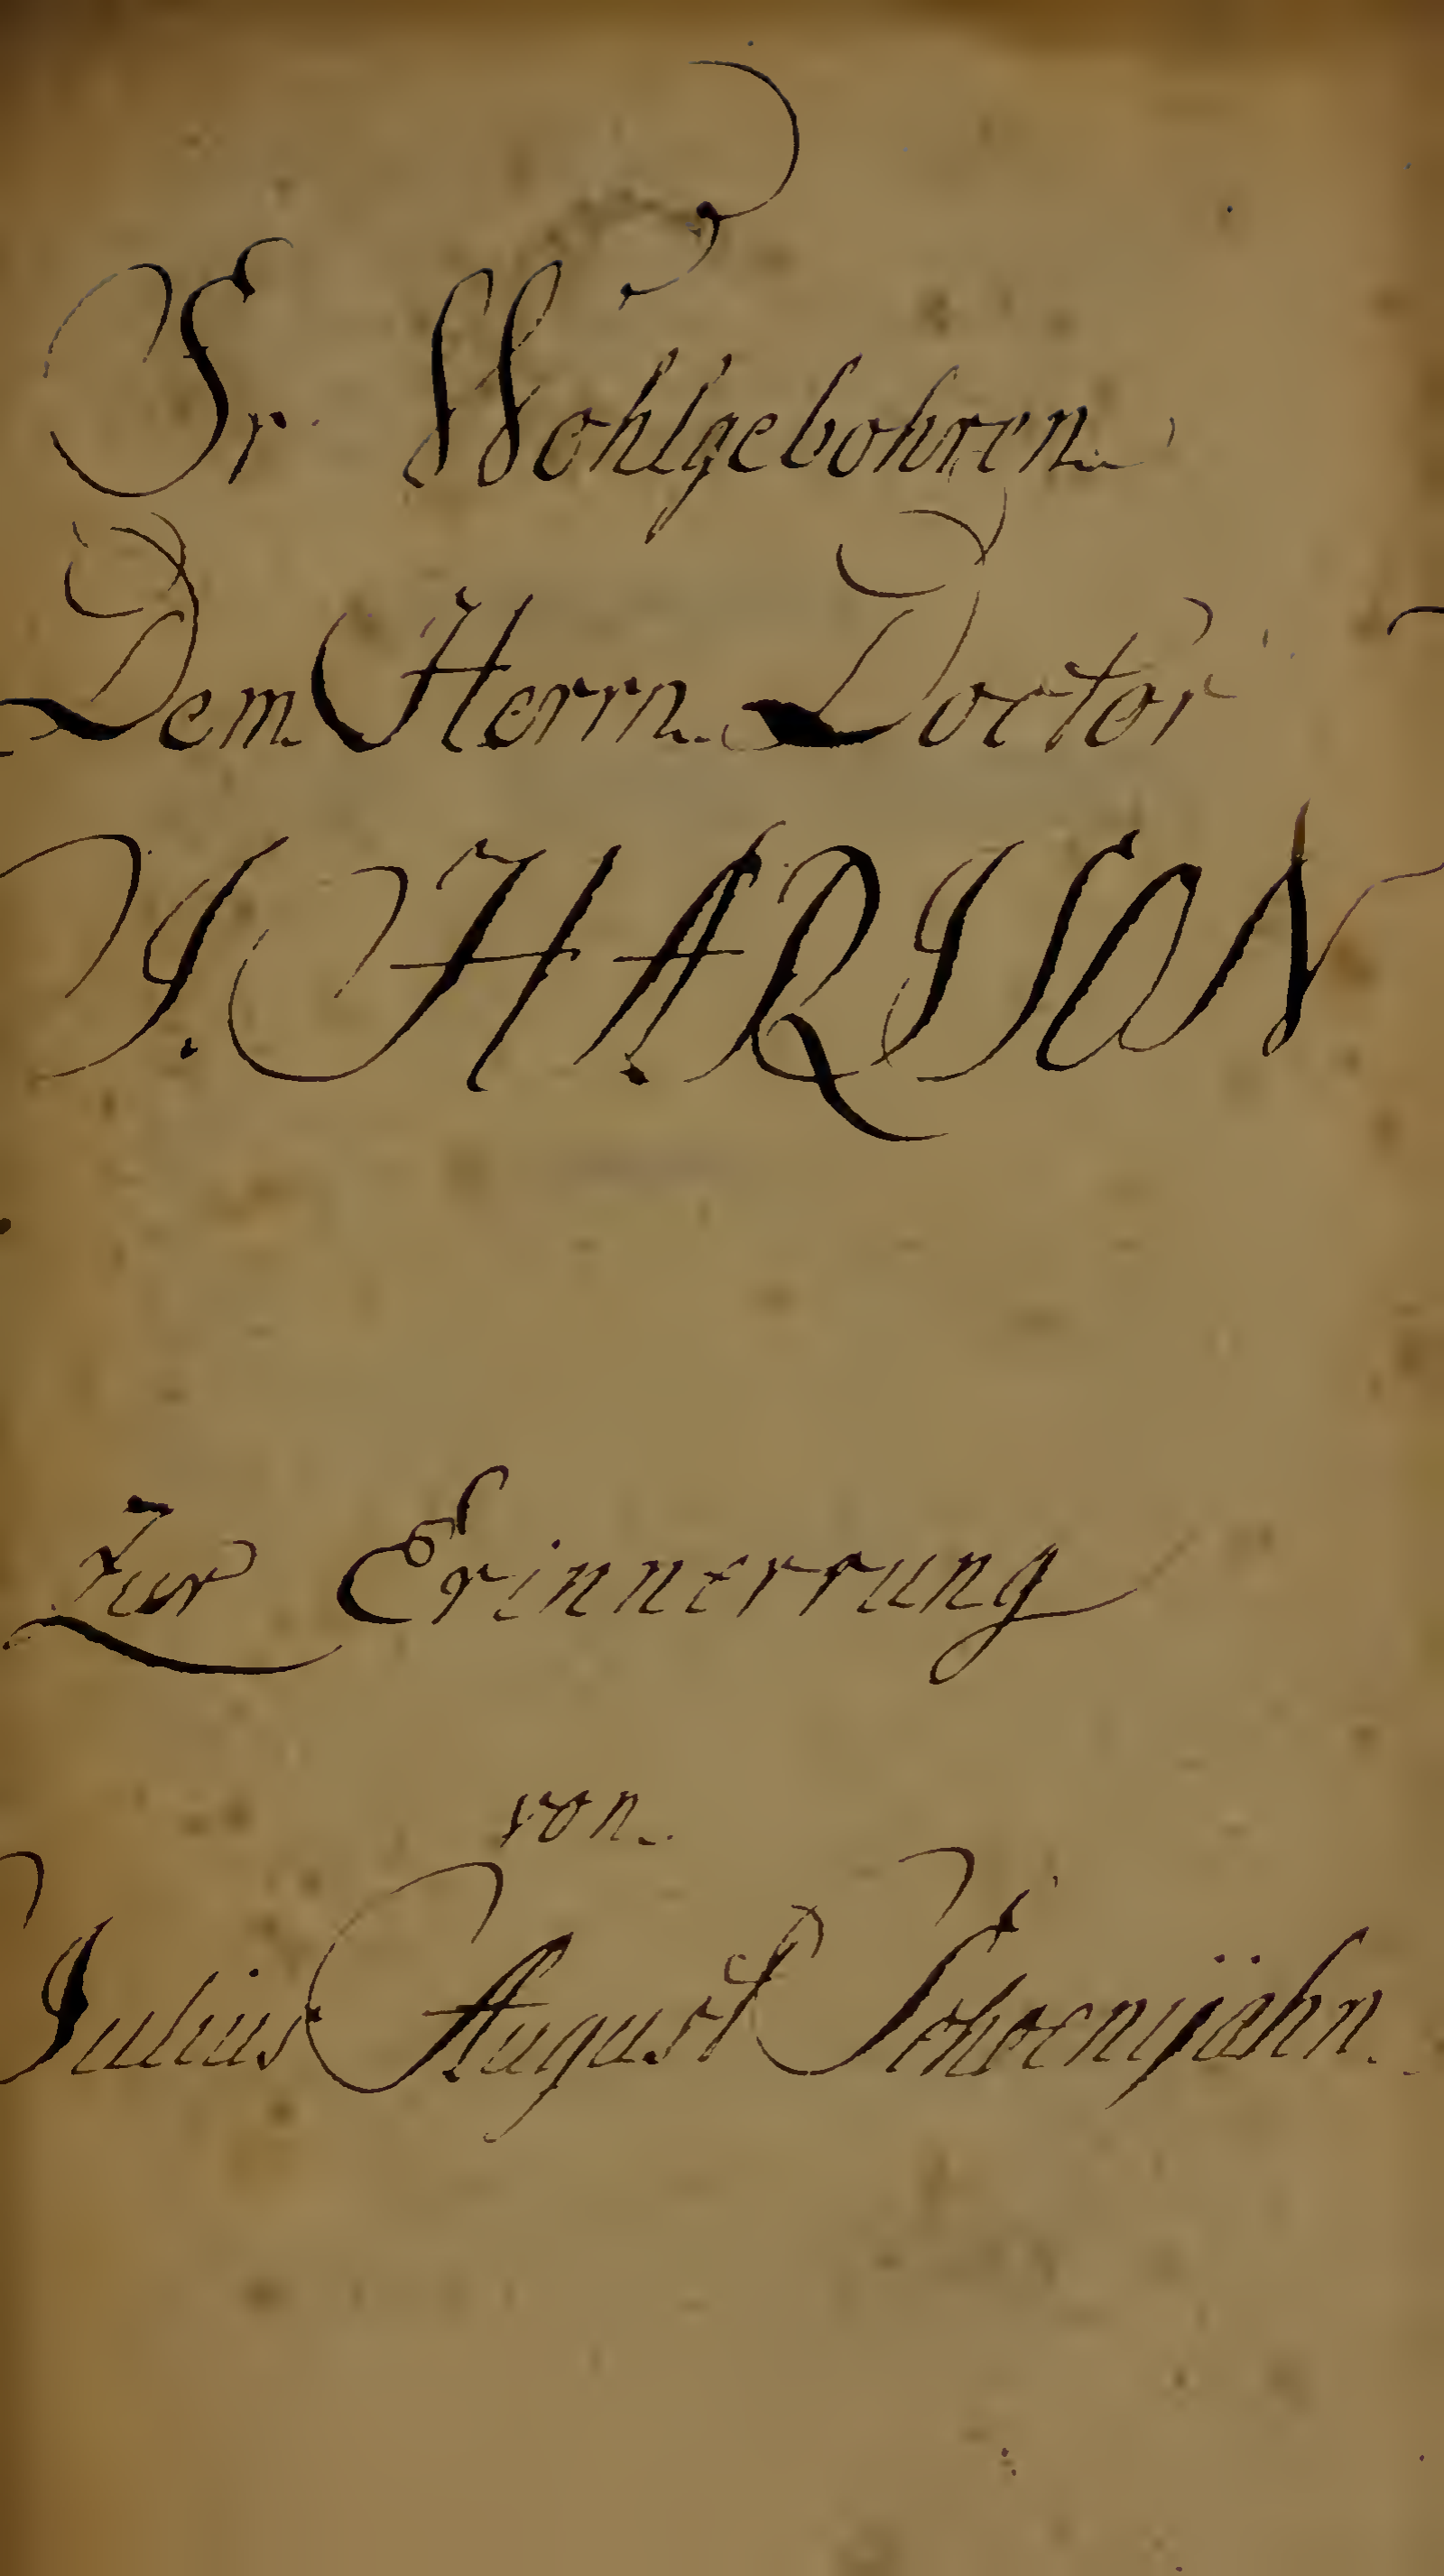 Sr. Wohlgebohren
Dem Herrn Doctor
I. HARISON
Zur Erinnerrung
von
Julius August Schoenjahn.